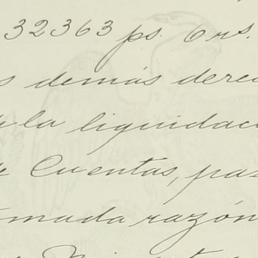 32363 ps. 6 rs.
s demás derec
la liquidaci
e Cuentas, pa
mada razón